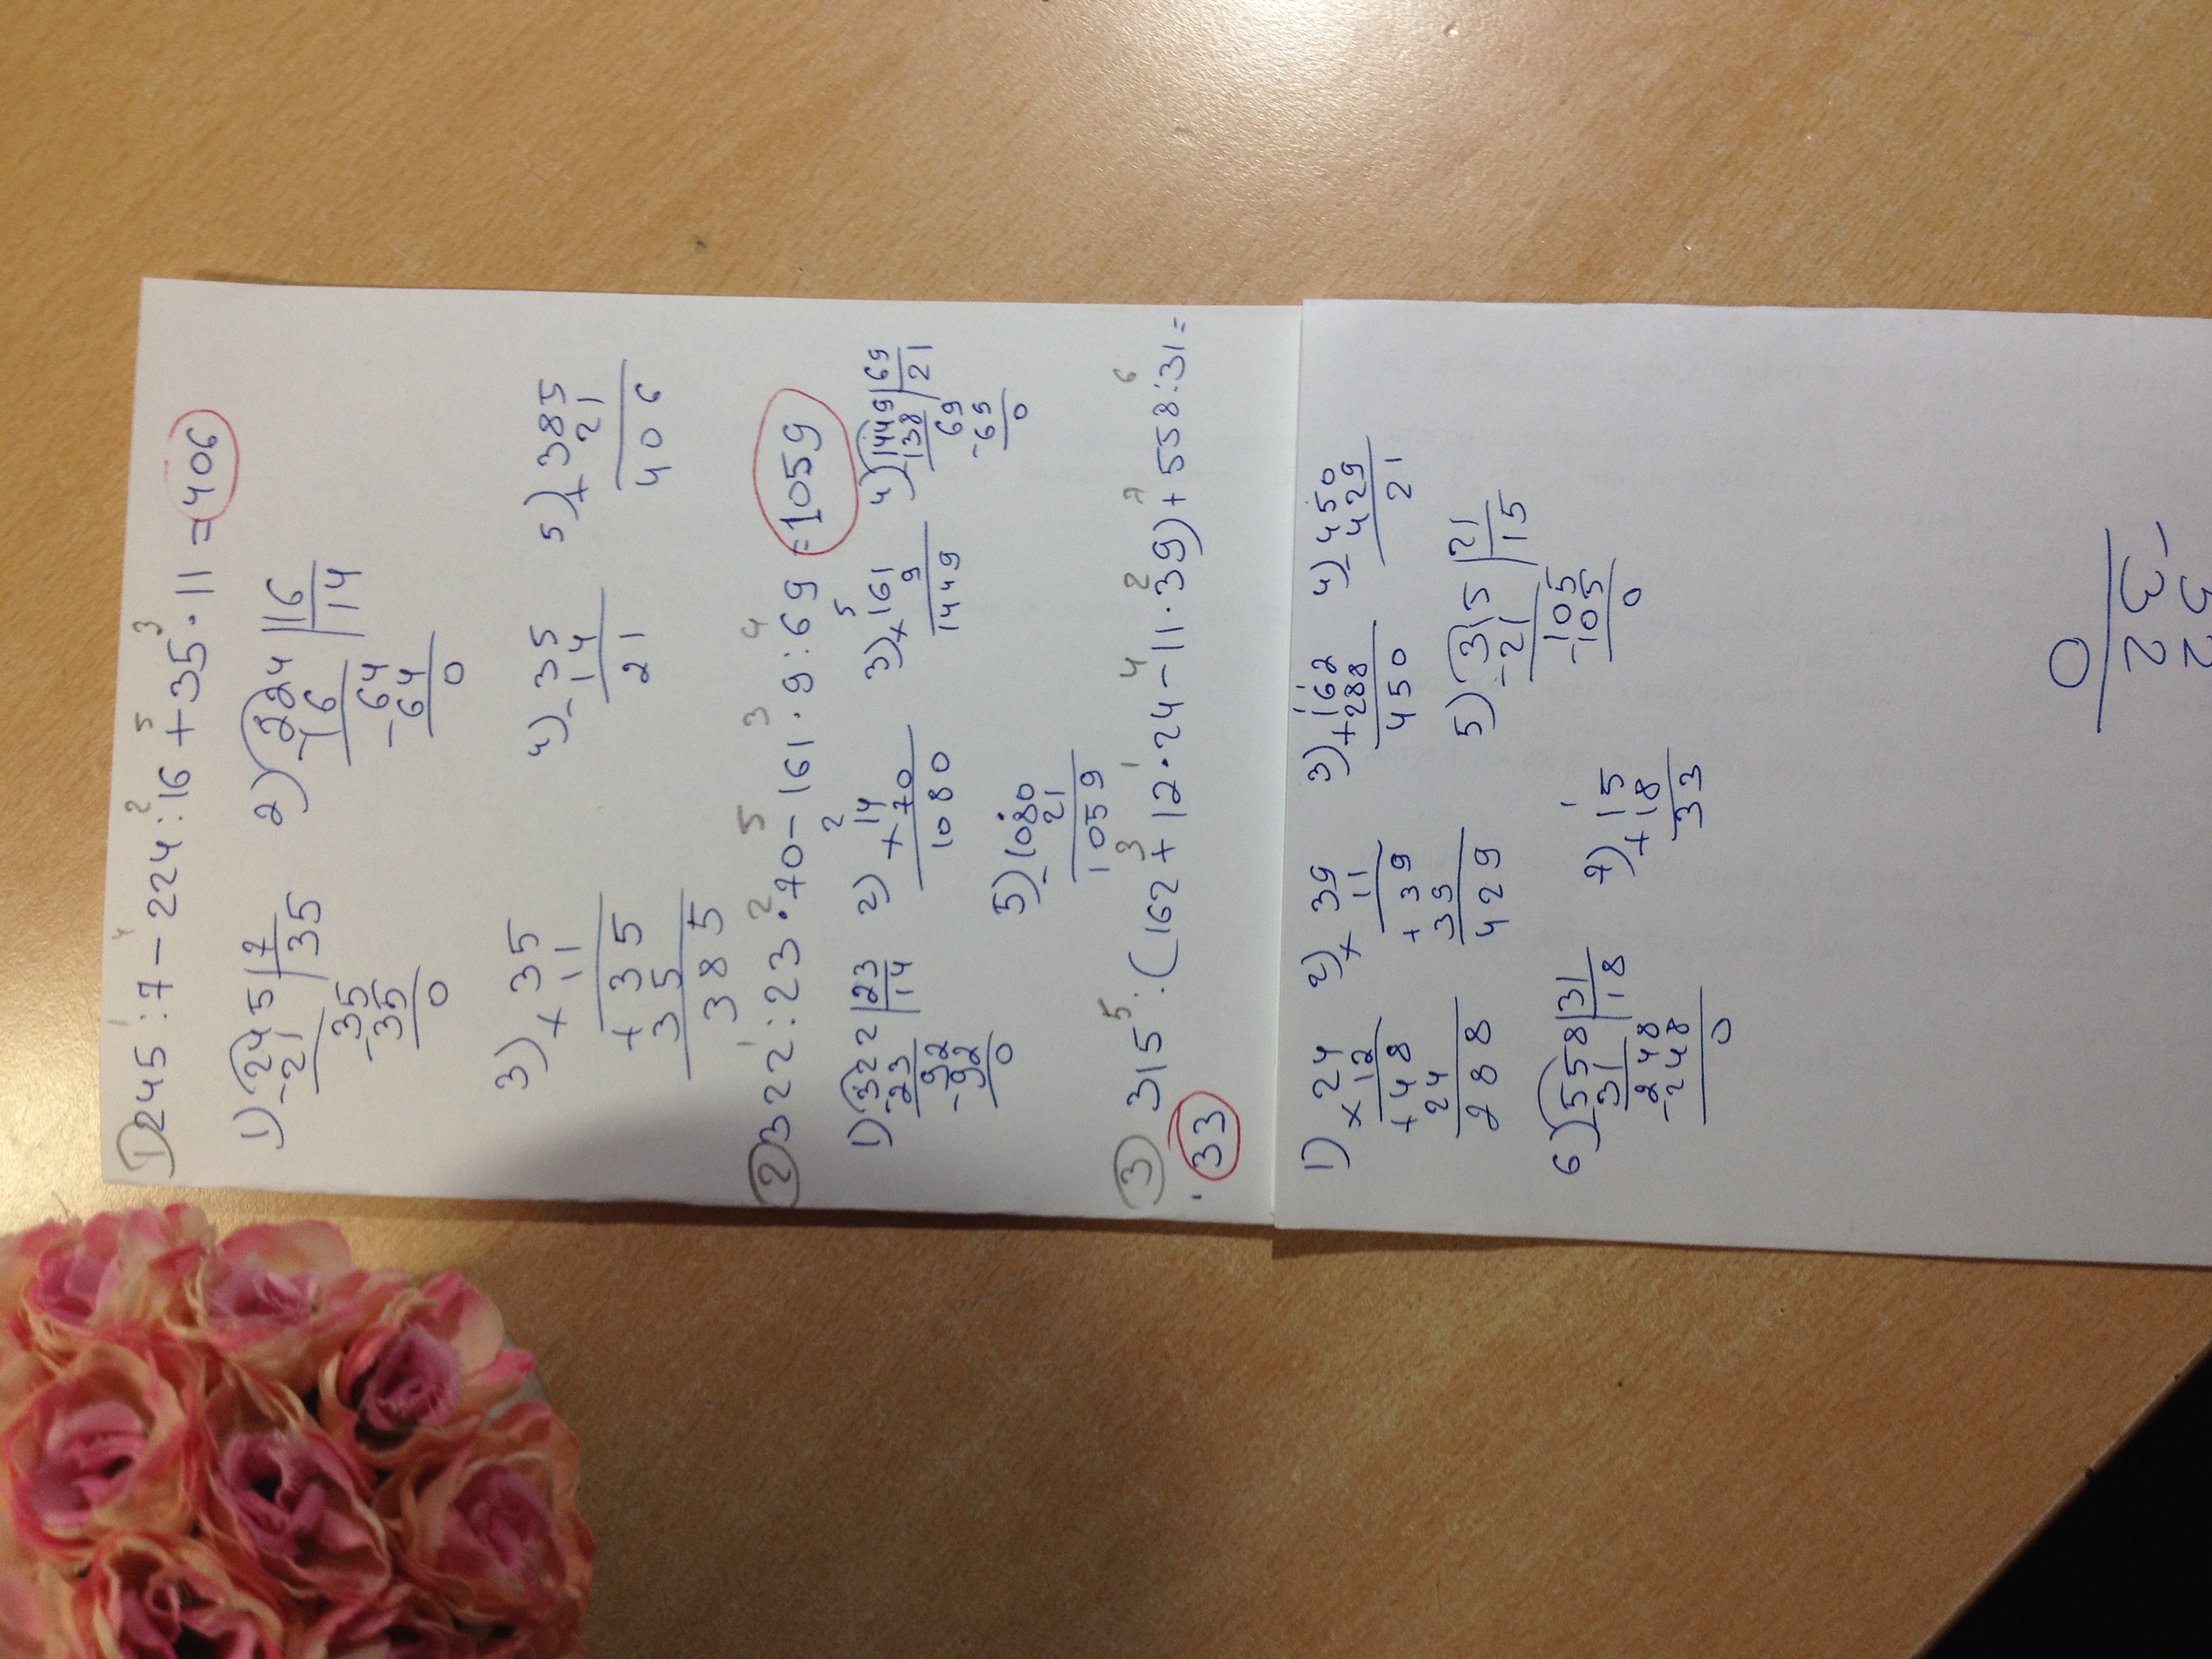 1) 245 : 7 - 224 : 16 + 35 · 11 = 406
1 4 2 5 3
1) 245 | 7 2) 224 | 16
-21 | 35 -16 | 14
-35 -64
35 64
0 0
3) × 35 4) - 35 5) + 385
11 14 21
+ 35 21 406
35
385
2) 322 : 23 · 70 - 161 · 9 : 69 = 1059
1 2 5 3 4
1) 322 | 23 2) × 14 3) × 161 4) 1449 | 69
-23 | 14 70 9 138 | 21
-92 1080 1449 69
92 -69
0 0
5) - 1080
21
1059
3) 315 : (162 + 12 · 24 - 11 · 39) + 558 : 31 =
5 3 1 4 2 7 6
· 33
1) × 24 2) × 39 3) + 162 4) - 450
12 11 288 429
+ 48 + 39 450 21
24 39
288 429
5) 315 | 21
-21 | 15
-105
105
0
6) 558 | 31 7) + 15
31 | 18 18
-248 33
248
0
32
0